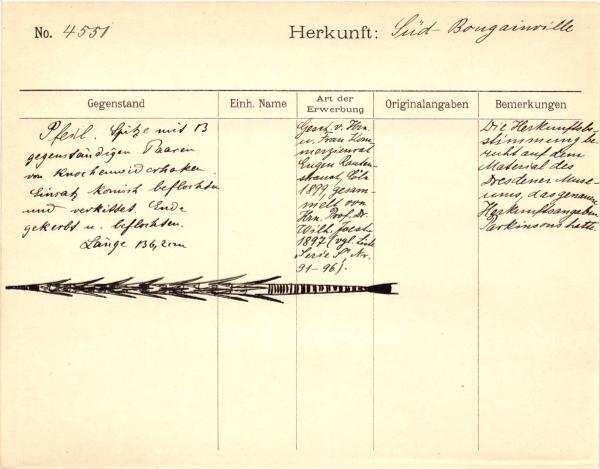 No. 4551
Herkunft: Süd-Bougainville
Gegenstand
Einh. Name
Art der Erwerbung
Originalangaben
Bemerkungen
Pfeil. Spitze mit 13
gegenständigen Paaren
von Knochenwiderhaken.
Einsatz konisch beflochten
und verkittet. Ende
gekerbt u. beflochten.
Länge 136,2 cm
Gesch. v. Hrn.
u. Frau Kom-
merzienrat
Eugen Rauten-
strauch, Köln
1899, gesam-
melt von
Hrn. Prof. Dr.
Wilh. Joest
1897 (vgl. Liste
Serie Nr.
91-96).
Die Herkunftsbe-
stimmung be-
ruht auf dem
Material des
Dresdener Muse-
ums, das genauere
Herkunftsangaben
Parkinsons hatte.